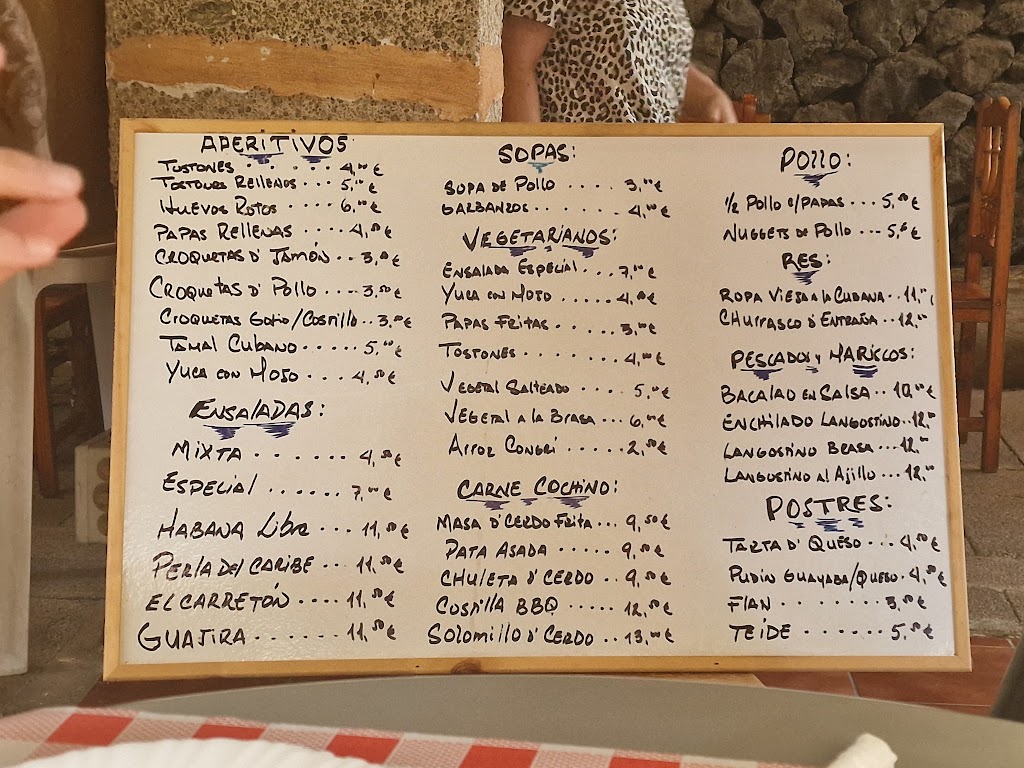 APERITIVOS
TOSTONES ...... 4,00 €
TOSTONES RELLENOS ... 5,00 €
HUEVOS ROTOS ... 6,00 €
PAPAS RELLENAS .... 4,50 €
CROQUETAS D' JAMÓN .. 3,00 €
CROQUETAS D' POLLO .... 3,50 €
CROQUETAS GOFIO/COSTILLA .. 3,00 €
TAMAL CUBANO ..... 5,00 €
YUCA CON MOJO .... 4,50 €
ENSALADAS:
MIXTA ....... 4,50 €
ESPECIAL ...... 7,00 €
HABANA LIBRE ... 11,50 €
PERLA DEL CARIBE ... 11,50 €
EL CARRETÓN .... 11,50 €
GUAJIRA ....... 11,50 €
SOPAS:
SOPA DE POLLO .... 3,00 €
GARBANZOS ...... 4,00 €
VEGETARIANOS:
ENSALADA ESPECIAL ... 7,00 €
YUCA CON MOJO .... 4,00 €
PAPAS FRITAS ..... 3,00 €
TOSTONES ....... 4,00 €
VEGETAL SALTEADO .... 5,00 €
VEGETAL A LA BRASA ... 6,00 €
ARROZ CONGRÍ ..... 2,50 €
CARNE COCHINO:
MASA D' CERDO FRITA ... 9,50 €
PATA ASADA ..... 9,50 €
CHULETA D' CERDO ... 9,50 €
COSTILLA BBQ ..... 12,50 €
SOLOMILLO D' CERDO ... 13,00 €
POLLO:
1/2 POLLO C/PAPAS ... 5,50 €
NUGGETS DE POLLO ... 5,50 €
RES:
ROPA VIEJA A LA CUBANA .. 11,00 €
CHURRASCO D' ENTRAÑA .. 12,00
PESCADOS Y MARISCOS:
BACALAO EN SALSA .. 10,00 €
ENCHILADO LANGOSTINO .. 12,00
LANGOSTINO BRASA ... 12,00
LANGOSTINO AL AJILLO ... 12,00
POSTRES:
TARTA D' QUESO ... 4,50 €
PUDÍN GUAYABA/QUESO . 4,50 €
FLAN ........ 3,50 €
TEIDE ....... 5,50 €